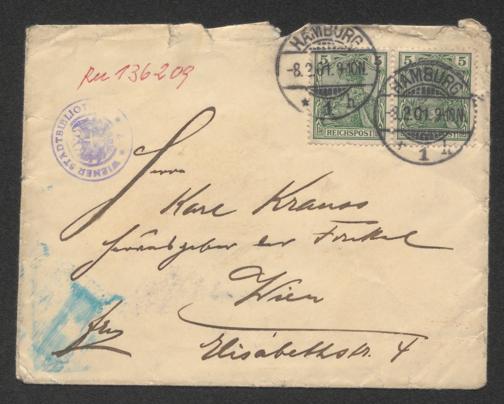 HAMBURG
-8.2.01. 9-10N.
* 1 h
HAMBURG
-8.2.01. 9-10N.
* 1 h
5 5
5 5
REICHSPOST
REICHSPOST
136209
WIENER STADTBIBLIOT
Herrn
Karl Krauss
Herausgeber der Fackel
Wien
Elisabethstr. 4